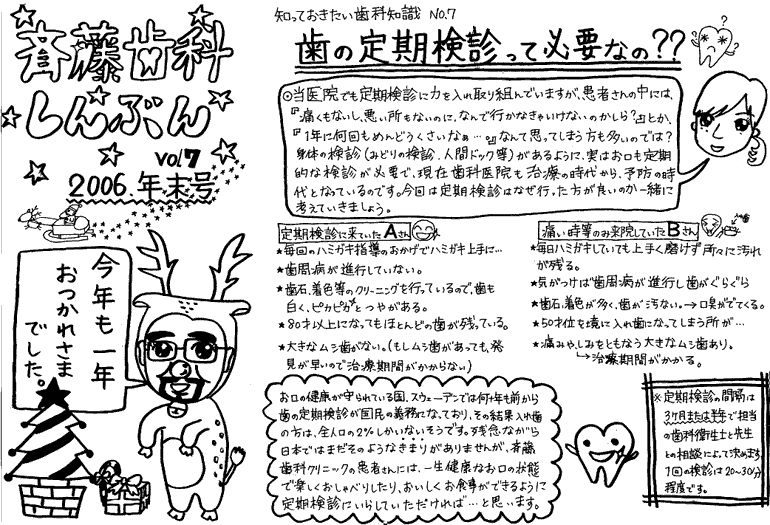 斉藤歯科
しんぶん
vol7
2006.年末号
今年も一年
おつかれさま
でした。
知っておきたい歯科知識 No.7
歯の定期検診って必要なの??
◎当医院でも定期検診に力を入れ取り組んでいますが、患者さんの中には、
『痛くもないし、悪い所もないのに、なんで行かなきゃいけないのかしら?』とか、
『1年に何回もめんどうくさいなぁ…。』なんて思ってしまう方も多いのでは?
身体の検診(みどりの検診、人間ドック等)があるように、実はお口も定期
的な検診が必要で、現在歯科医院も治療の時代から、予防の時
代となっているのです。今回は定期検診はなぜ行った方が良いのか一緒に
考えていきましょう。
定期検診に来ていたAさん
★毎回のハミガキ指導のおかげでハミガキ上手に…
★歯周病が進行していない。
★歯石、着色等のクリーニングを行っているので、歯も
白く、ピカピカとつやがある。
★80才以上になってもほとんどの歯が残っている。
★大きなムシ歯がない。(もしムシ歯があっても、発
見が早いので治療期間がかからない)
痛い時等のみ来院していたBさん
★毎日ハミガキしていても上手く磨けず所々に汚れ
が残る。
★気がつけば歯周病が進行し歯がぐらぐら
★歯石、着色が多く、歯が汚ない。→口臭がでてくる。
★50才位を境に入れ歯になってしまう所が…
★痛みや、しみをともなう大きなムシ歯あり。
↳治療期間がかかる。
お口の健康が守られている国、スウェーデンでは何十年も前から
歯の定期検診が国民の義務となっており、その結果入れ歯
の方は、全人口の2%しかいないそうです。残念ながら
日本ではまだそのようなきまりがありませんが、斉藤
歯科クリニックの患者さんには、一生健康なお口の状態
で楽しくおしゃべりしたり、おいしくお食事ができるように
定期検診にいらしていただければ…と思います。
※定期検診の間隔は
3ヶ月または半年で担当
の歯科衛生士と先生
との相談によって決めます。
1回の検診は20~30分
程度です。